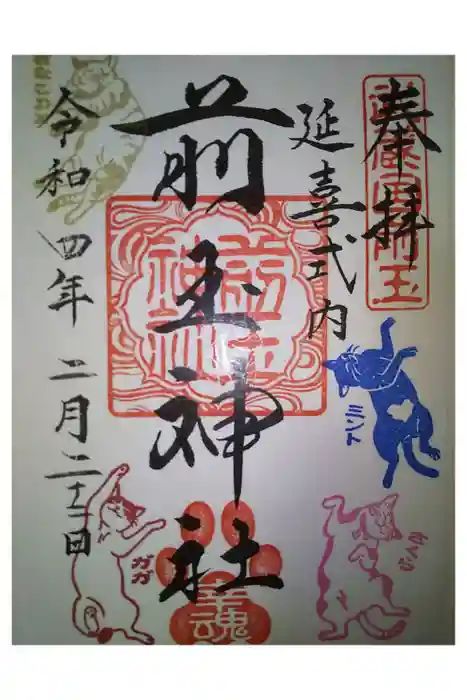 奉拝
武蔵國前玉
延喜式内
前玉神社
前玉神社
幸魂
令和四年二月二十二日
ミント
ガガ
さくら